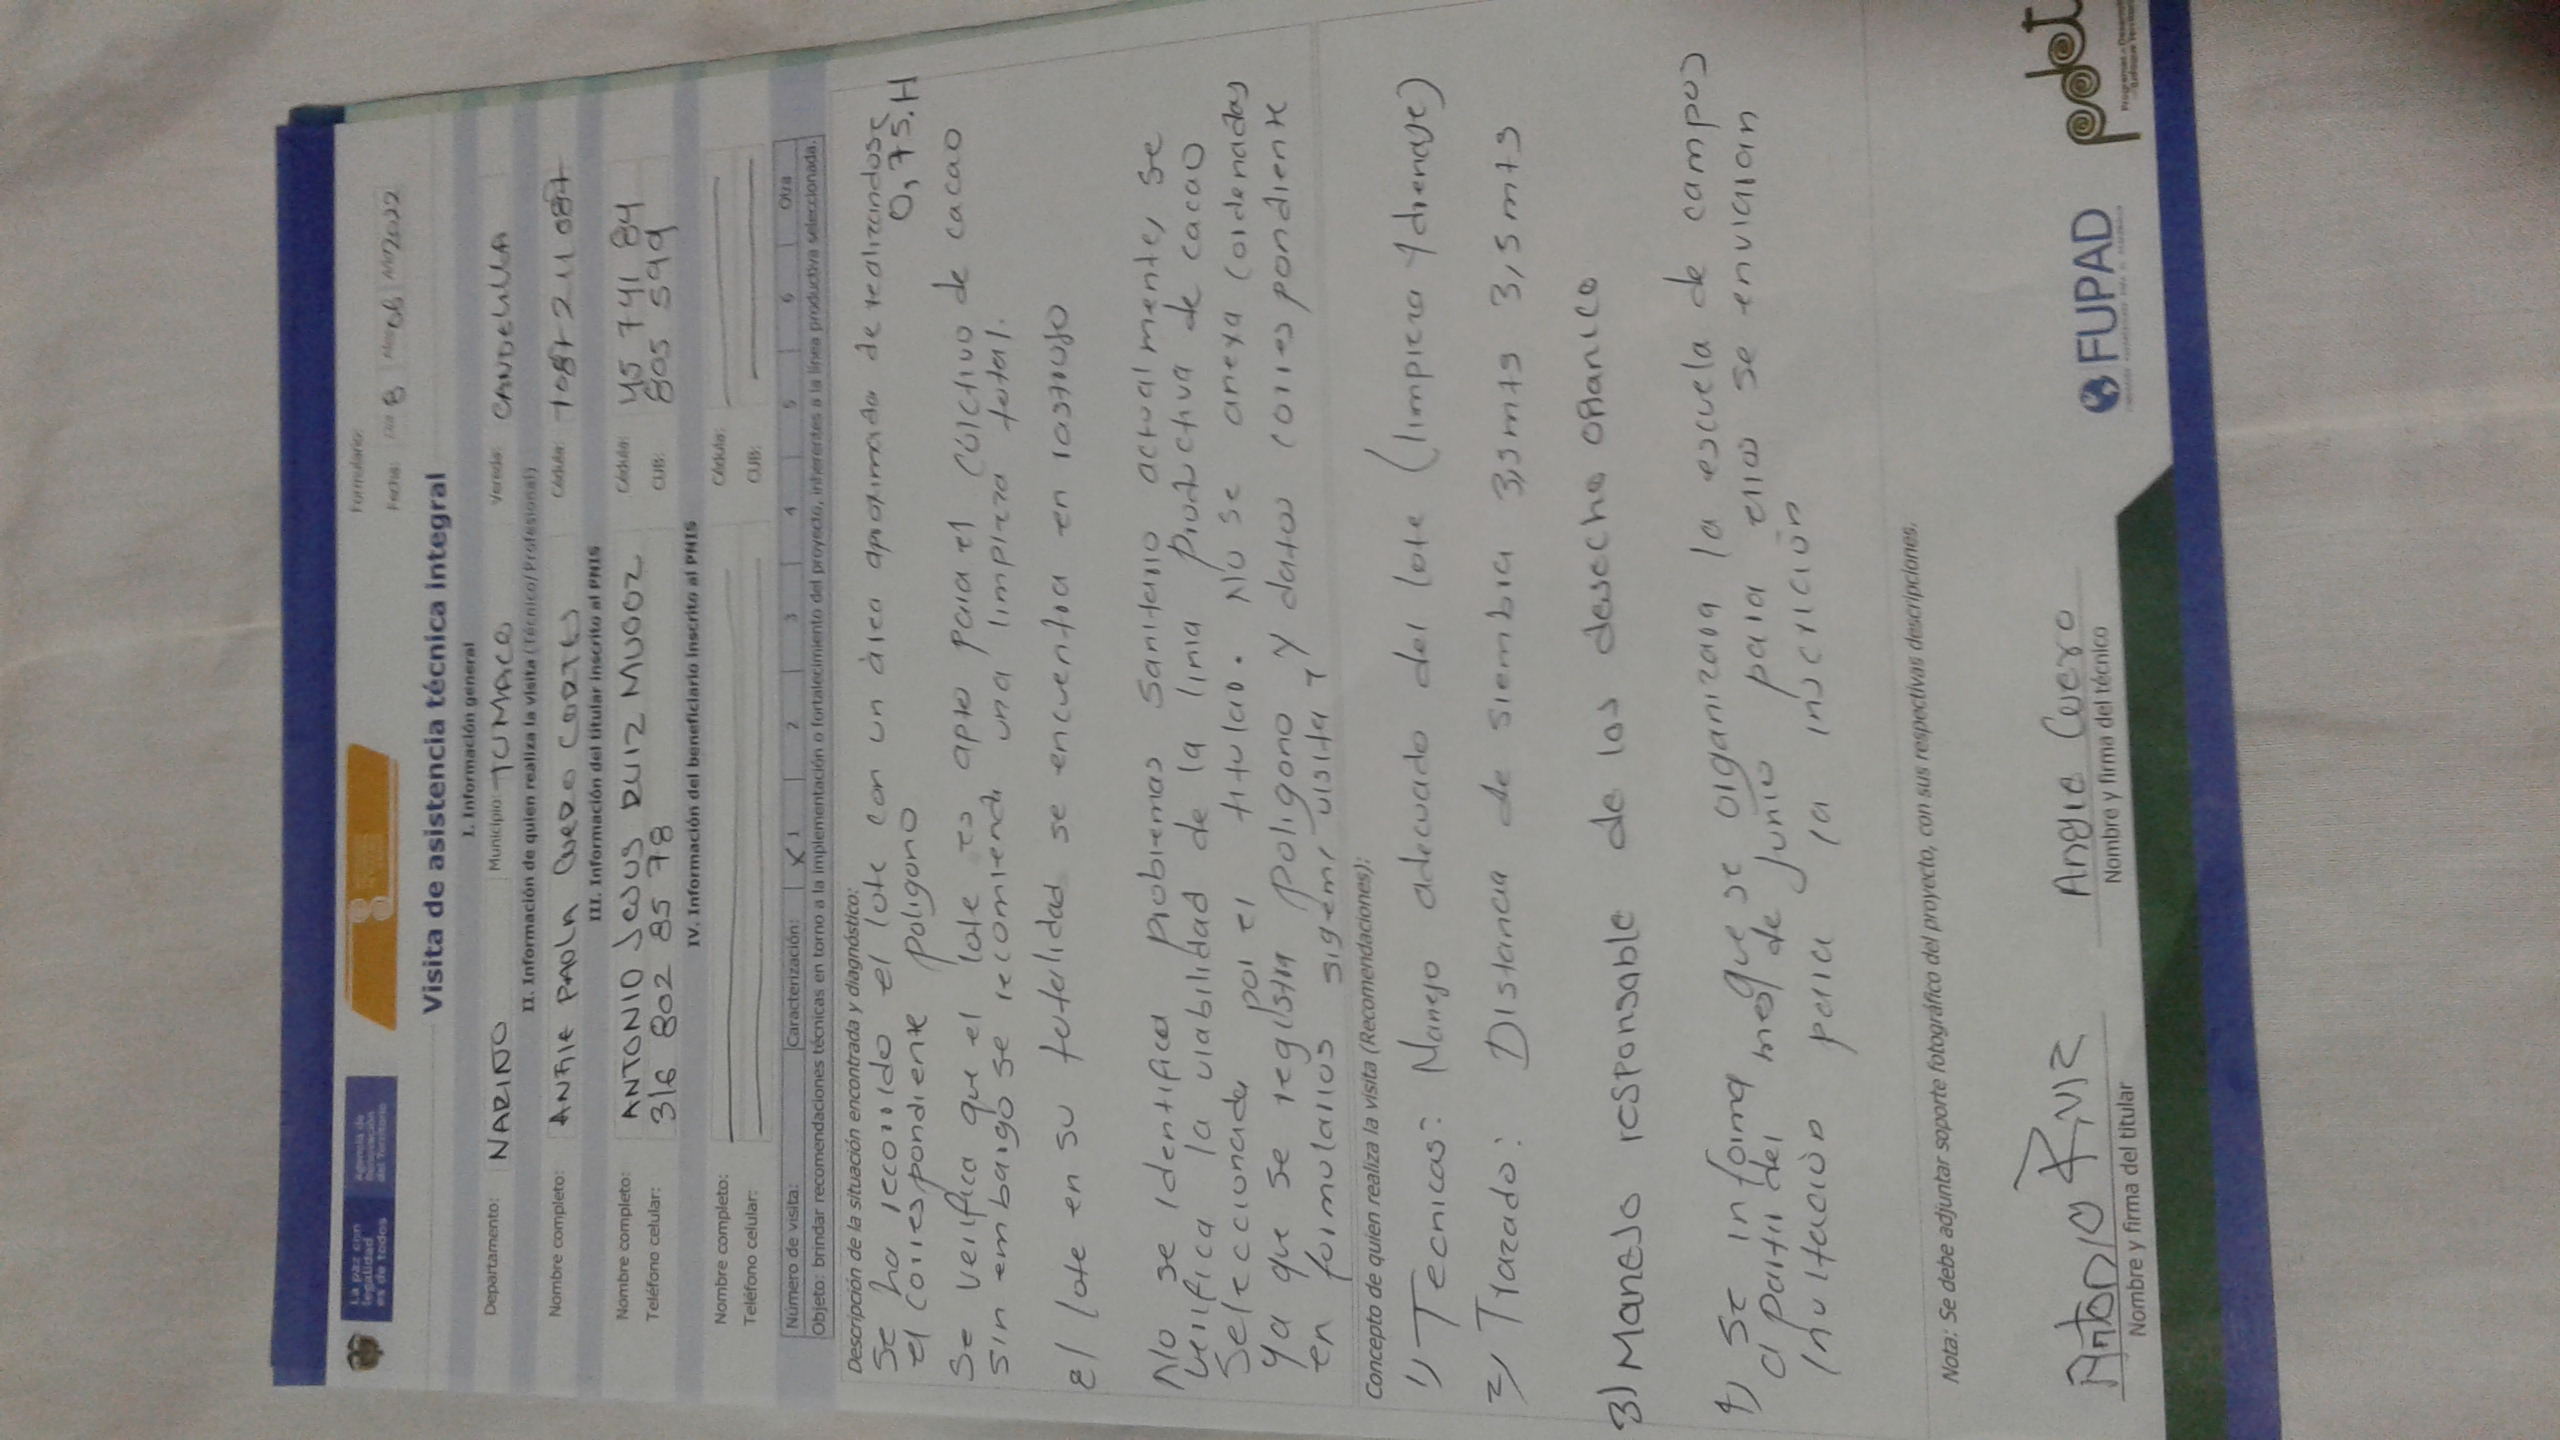 La paz con
legalidad
es de todos
Agencia de
Renovación
del Territorio
Formulario:
Fecha: Día 8 Mes 06 Año 2022
Visita de asistencia técnica integral
I. Información general
Departamento: NARIÑO Municipio: TUMACO Vereda: CANDELILLA
II. Información de quien realiza la visita (Técnico/Profesional)
Nombre completo: ANGIE PAOLA CUERO CORTES Cédula:
III. Información del titular inscrito al PNIS
Nombre completo: ANTONIO JESUS RUIZ MUÑOZ Cédula: 45 741 84
Teléfono celular: 316 802 85 78 CUB: 805 599
IV. Información del beneficiario inscrito al PNIS
Nombre completo: Cédula:
Teléfono celular: CUB:
Número de visita: Caracterización: X 1 2 3 4 5 6 Otra
Objeto: brindar recomendaciones técnicas en torno a la implementación o fortalecimiento del proyecto, inherentes a la línea productiva seleccionada.
Descripción de la situación encontrada y diagnóstico:
Se ha recorrido el lote con un àrea aproximada de realizandose
el correspondiente poligono 0,75.H
Se verifica que el lote es apto para el cultivo de cacao
sin embargo se recomienda una limpieza total.
el lote en su totalidad se encuentra en rastrojo
No se identifica problemas sanitario actualmente, se
verifica la viabilidad de la linia productiva de cacao
seleccionada por el titular. No se anexa coordenadas
ya que se registra poligono y datos correspondiente
en formularios sigemi visita 1
Concepto de quien realiza la visita (Recomendaciones):
1) Tecnicas: Manejo adecuado del lote (limpieza y drenaje)
2) Trazado: Distancia de siembra 3,5mts 3,5mts
3) Manejo responsable de los desecho organico
4) Se informa que se organizara la escuela de campos
a partir del mes de junio para ello se enviaran
invitación previa la inscrición
Nota: Se debe adjuntar soporte fotográfico del proyecto, con sus respectivas descripciones.
Antonio Ruiz
Nombre y firma del titular
Angie Cuero
Nombre y firma del técnico
FUPAD
pdet